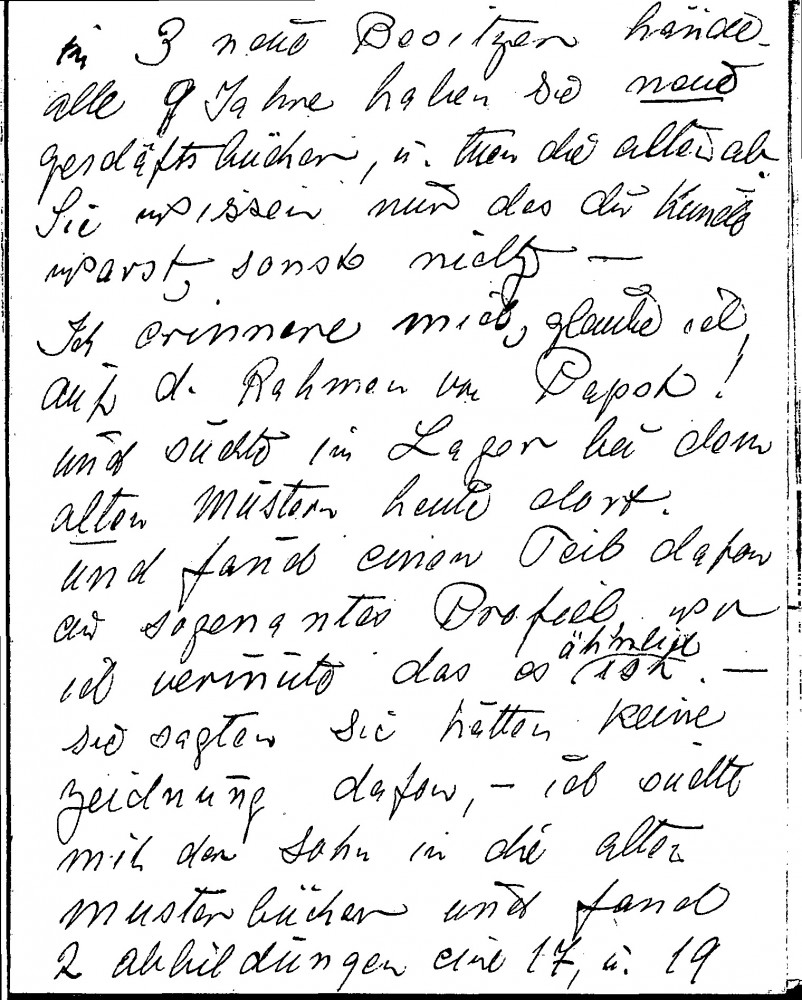 in 3 neue Besitzer hände.
alle 9 Jahre haben sie neue
gesdäftsbücher, u. tuen die alten ab.
Sie wissen nur das du Kunde
warst, sonst nichts —
Ich erinnere mich, glaube ich,
auf d. Rahmen von Papst!
und suchte im Lager bei dem
alten Mustern heute dort.
und fand einen Teil dafon
ein sogenantes Profiel, wo
ich vermute das es ähnlich ist. —
sie sagten sie hätten keine
zeidnung dafon, – ich suchte
mit den Sohn in die alten
musterbücher und fand
2 abbildungen eine 17, u. 19